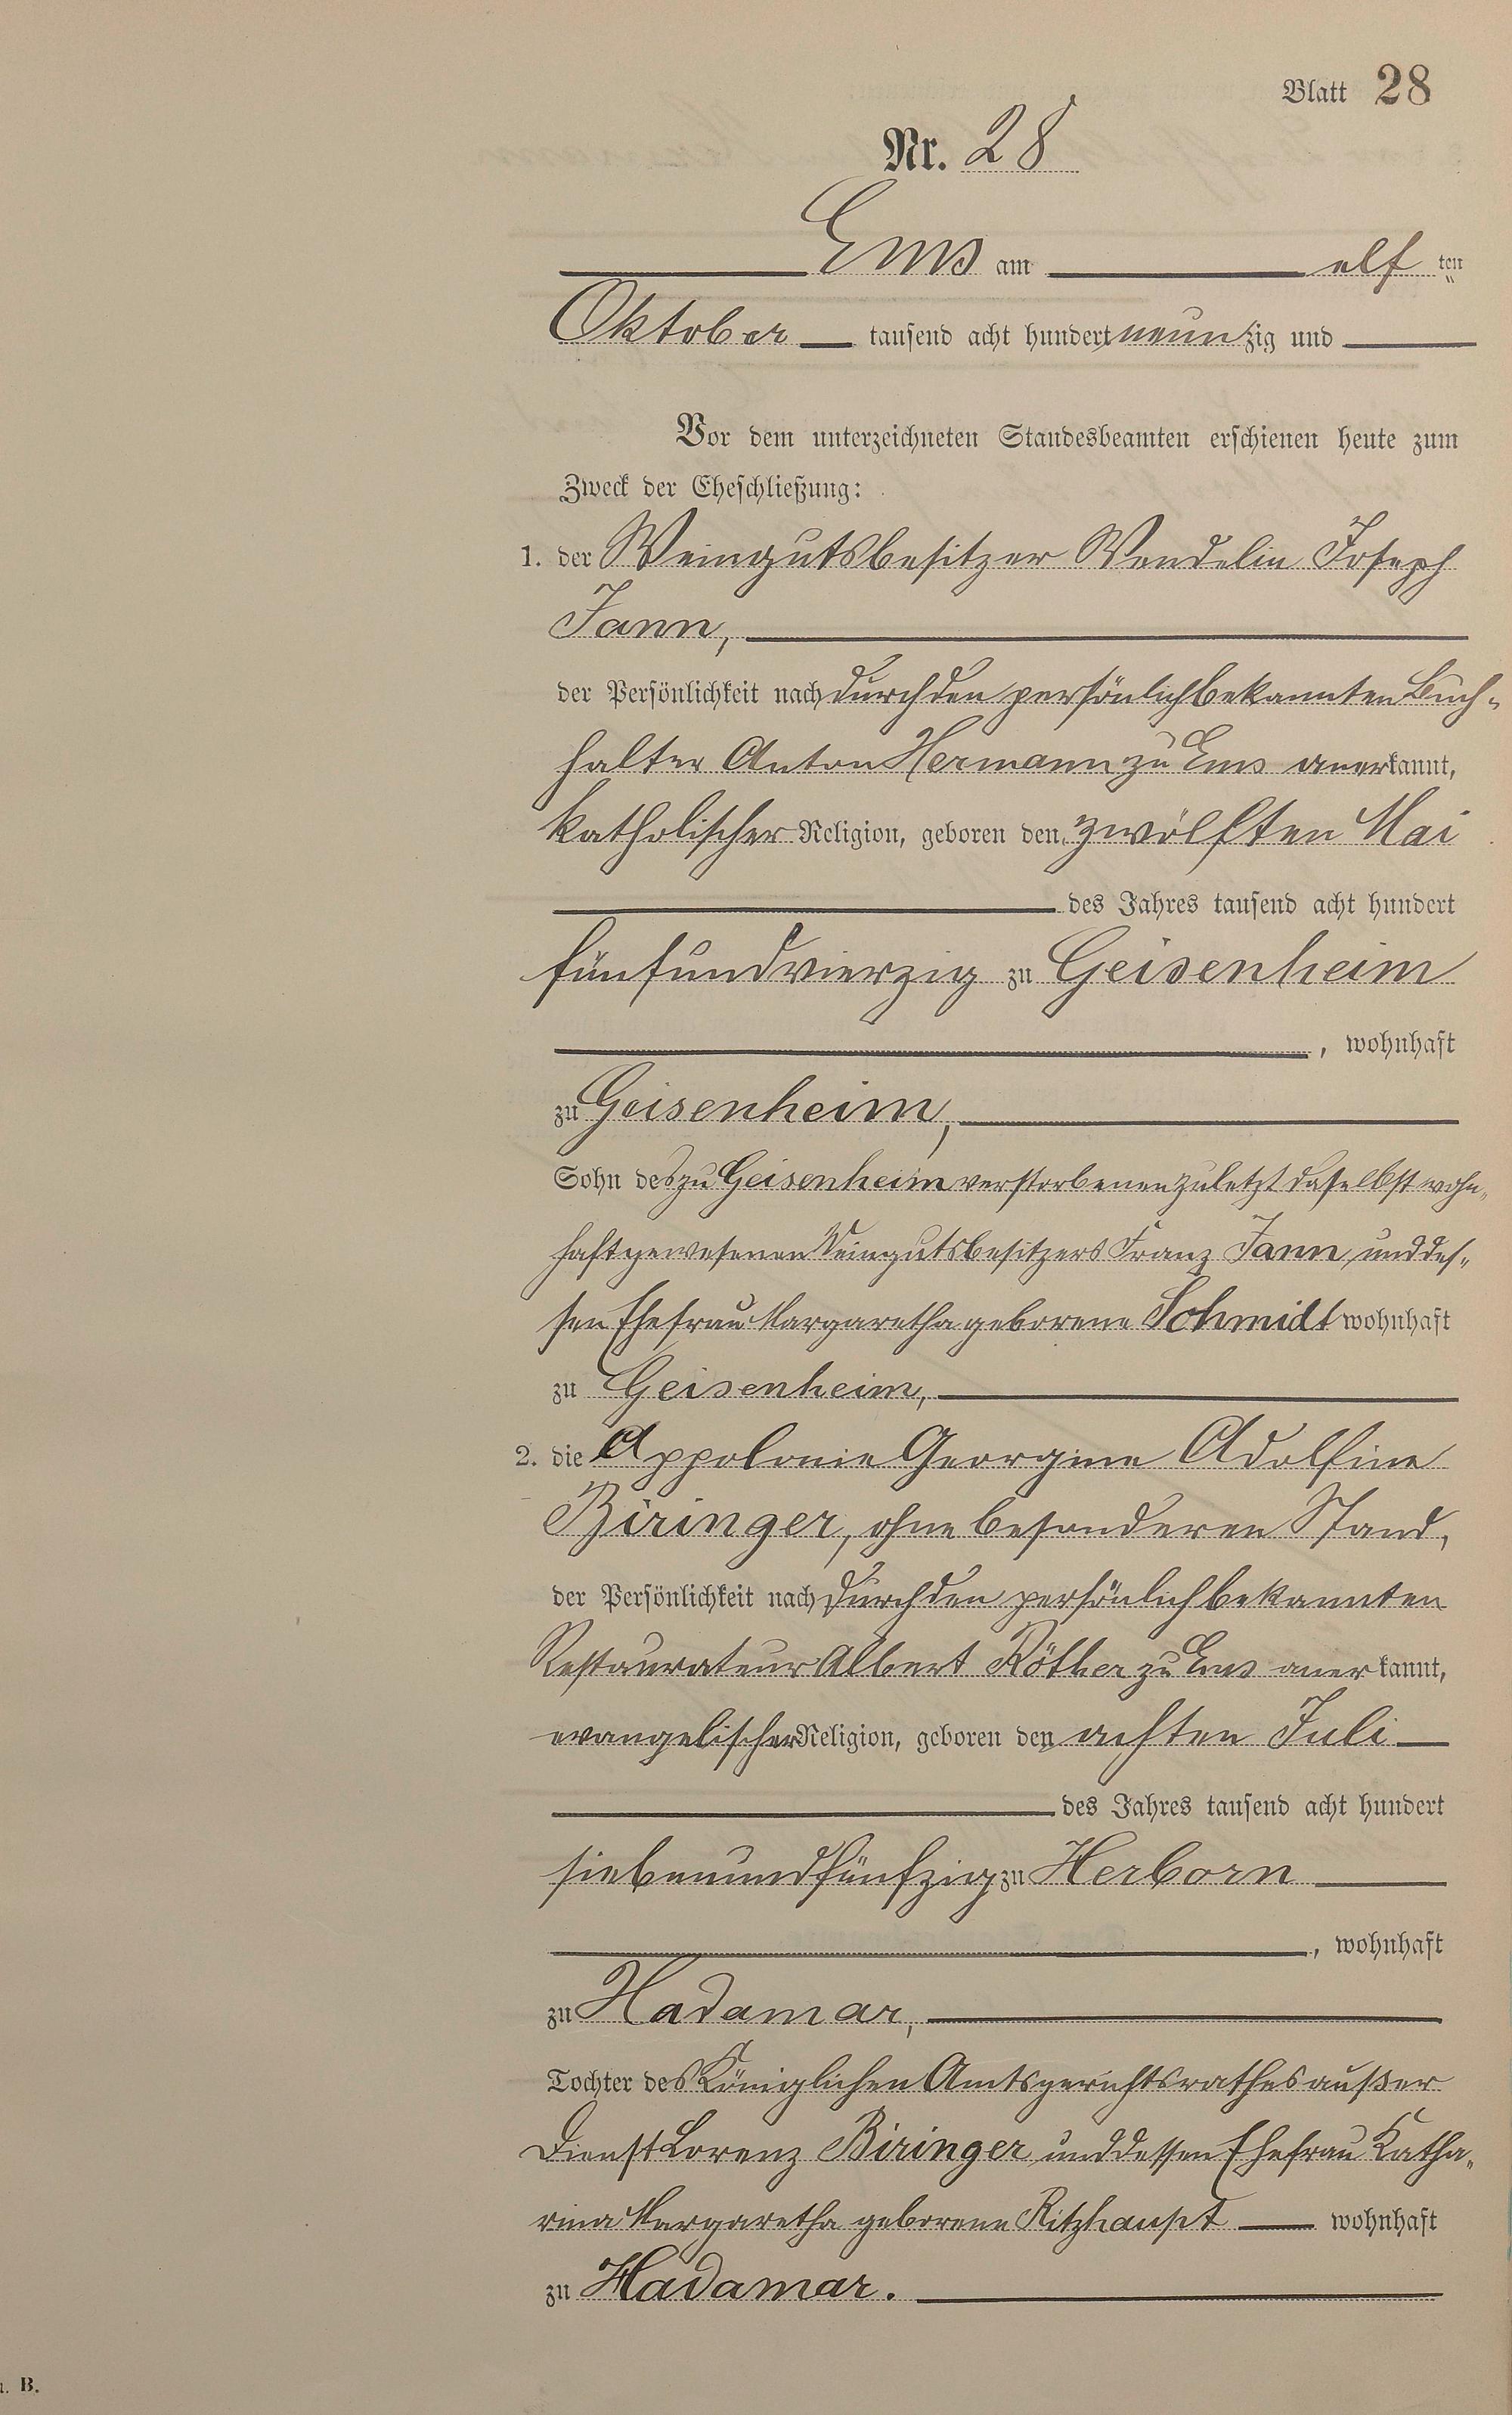 Blatt 28
Nr. 28
Ems am elf ten
Oktober tausend acht hundert neunzig und
Vor dem unterzeichneten Standesbeamten erschienen heute zum
Zweck der Eheschließung:
1. der Weingutsbesitzer Wendelin Joseph
Jann,
der Persönlichkeit nach durch den persönlich bekannten Buch-
halter Anton Hermann zu Ems anerkannt,
katholischer Religion, geboren den zwölften Mai
des Jahres tausend acht hundert
fünfundvierzig zu Geisenheim
, wohnhaft
zu Geisenheim,
Sohn des zu Geisenheim verstorbenen zuletzt daselbst wohn-
haft gewesenen Weingutsbesitzers Franz Jann, und des-
sen Ehefrau Margaretha geborene Schmidt wohnhaft
zu Geisenheim,
2. die Appolonie Georgine Adolfine
Biringer, ohne besonderen Stand,
der Persönlichkeit nach durch den persönlich bekannten
Restaurateur Albert Röther zu Ems anerkannt,
evangelischer Religion, geboren den achten Juli
des Jahres tausend acht hundert
siebenundfünfzig zu Herborn
, wohnhaft
zu Hadamar,
Tochter des Königlichen Amtsgerichtsrathes außer
Dienst Lorenz Biringer und dessen Ehefrau Katha-
rina Margaretha geborene Ritzhaupt wohnhaft
zu Hadamar.
B.